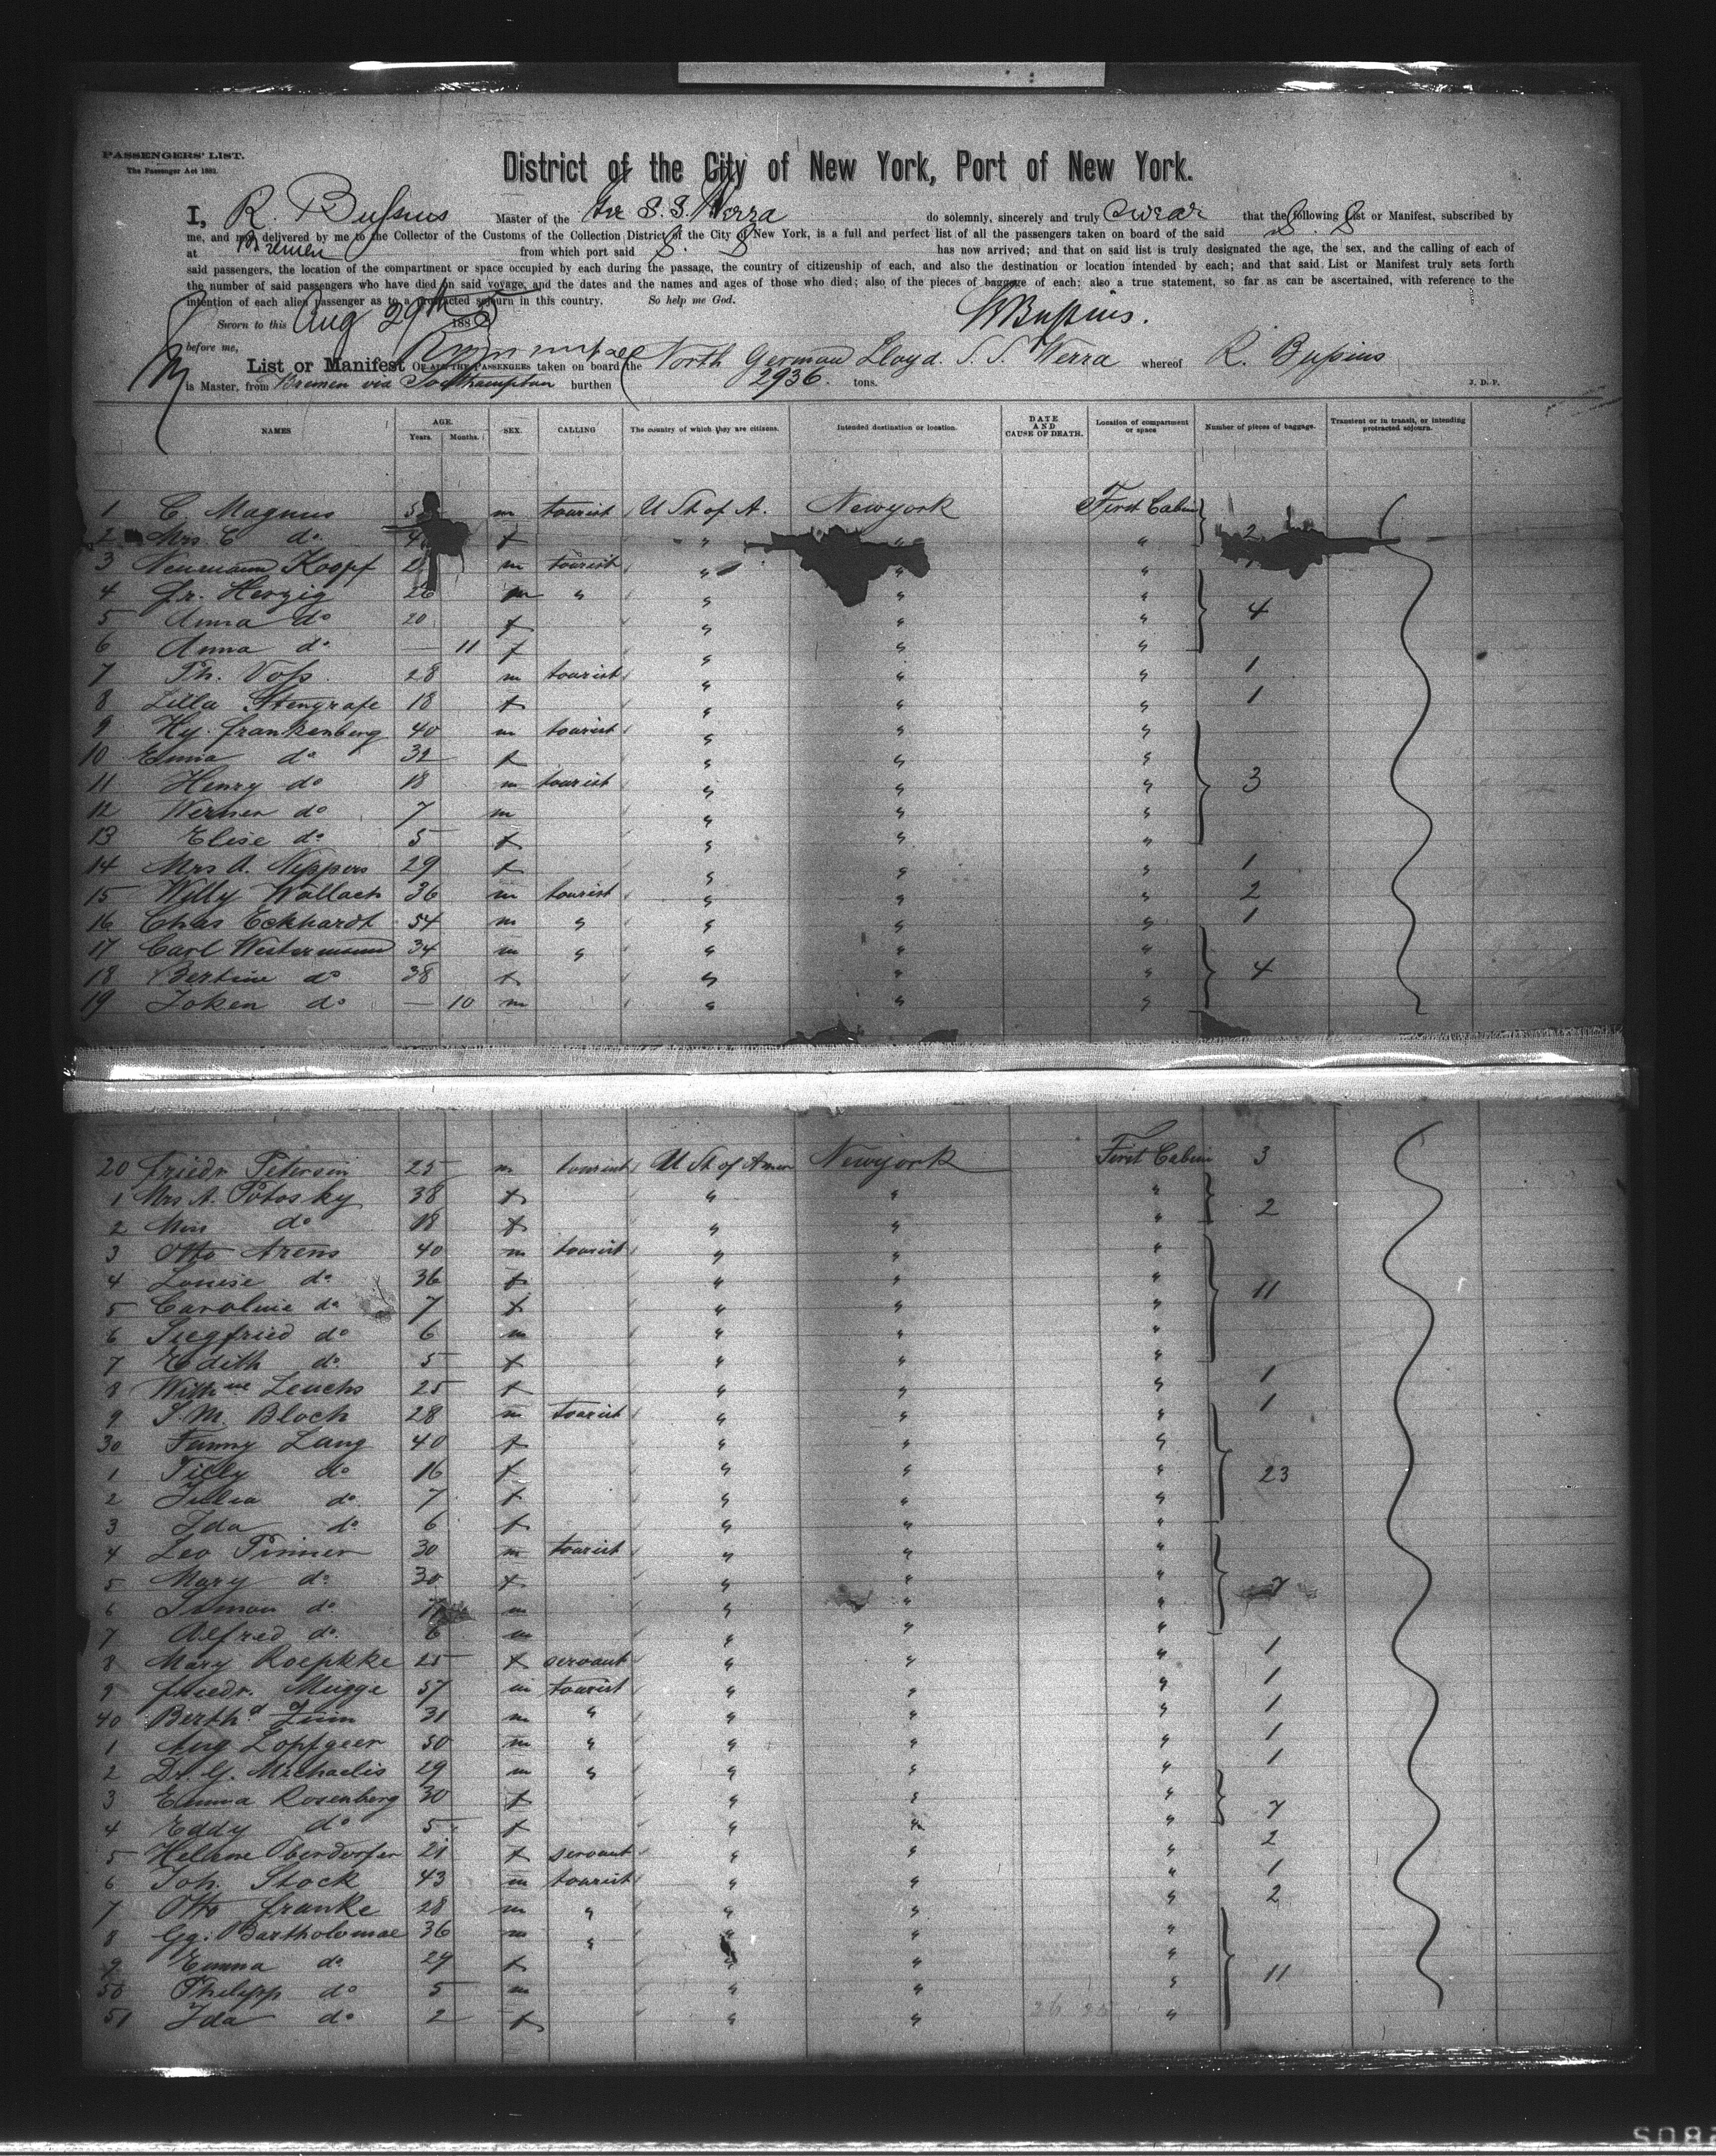 PASSENGERS' LIST.
The Passenger Act 1882.
District of the City of New York, Port of New York.
I, R. Bussius Master of the S.S. Werra do solemnly, sincerely and truly swear that the following List or Manifest, subscribed by
me, and now delivered by me to the Collector of the Customs of the Collection District of the City of New York, is a full and perfect list of all the passengers taken on board of the said S. S
at Bremen from which port said S. S has now arrived; and that on said list is truly designated the age, the sex, and the calling of each of
said passengers, the location of the compartment or space occupied by each during the passage, the country of citizenship of each, and also the destination or location intended by each; and that said List or Manifest truly sets forth
the number of said passengers who have died on said voyage, and the dates and the names and ages of those who died; also of the pieces of baggage of each; also a true statement, so far as can be ascertained, with reference to the
intention of each alien passenger as to a protracted sojourn in this country. So help me God.
Sworn to this Aug 29th 188
before me, Bussius.
List or Manifest OF ALL THE PASSENGERS taken on board the North German Lloyd S. S. Werra whereof R. Bussius
is Master, from Bremen via Southampton burthen 2936. tons. J. D. P.
NAMES AGE. Years. Months. SEX. CALLING The country of which they are citizens. Intended destination or location. DATE AND CAUSE OF DEATH. Location of compartment or space Number of pieces of baggage. Transient or in transit, or intending protracted sojourn.
1 C Magnus m tourist U St of A. Newyork First Cabin
2 Mrs. C do f " " 2
3 Neumann Kopf m tourist " " "
4 Fr. Herzig 26 m " " " "
5 Anna do 20 f " " " 4
6 Anna do — 11 f " " "
7 Th. Voss 28 m tourist " " " 1
8 Lilla Stengrafe 18 f " " " 1
9 Hy. Frankenberg 40 m tourist " " "
10 Emma do 32 f " " "
11 Henry do 18 m tourist " " " 3
12 Werner do 7 m " " "
13 Elise do 5 f " " "
14 Mrs A. Nippers 29 f " " " 1
15 Willy Wallach 36 m tourist " " " 2
16 Chas Eckhardt 54 m " " " " 1
17 Carl Westermann 34 m " " " "
18 Bertine do 38 f " " " 4
19 do — 10 m " " "
20 Friedr Petersen 25 m tourist U St of Amer Newyork First Cabin 3
1 Mrs A. Potosky 38 f " " "
2 Miss do 18 f " " " 2
3 Otto Arens 40 m tourist " " "
4 Louise do 36 f " " "
5 Caroline do 7 f " " " 11
6 Siegfried do 6 m " " "
7 Edith do 5 f " " "
8 Wilhne Leuchs 25 f " " " 1
9 S. M. Bloch 28 m tourist " " " 1
30 Fanny Lang 40 f " " "
1 Tilly do 16 f " " " 23
2 Julia do 7 f " " "
3 Ida do 6 f " " "
4 Leo Pinner 30 m tourist " " "
5 Mary do 30 f " " " 7
6 Simon do 7 m " " "
7 Alfred do 6 m " " "
8 Mary Roepkke 25 f servant " " " 1
9 Friedr. Mugge 57 m tourist " " " 1
40 Berthd Zinn 31 m " " " " 1
1 Aug Zopfgeer 50 m " " " " 1
2 Dr. G. Michaelis 29 m " " " " 1
3 Emma Rosenberg 30 f " " "
4 Eddy do 5 f " " " 7
5 Helene Oberdorfer 21 f servant " " " 2
6 Joh. Stock 43 m tourist " " " 1
7 Otto Franke 28 m " " " " 2
8 Gg. Bartholomae 36 m " " " "
9 Emma do 29 f " " "
50 Philipp do 5 m " " " 11
51 Ida do 2 f " " "